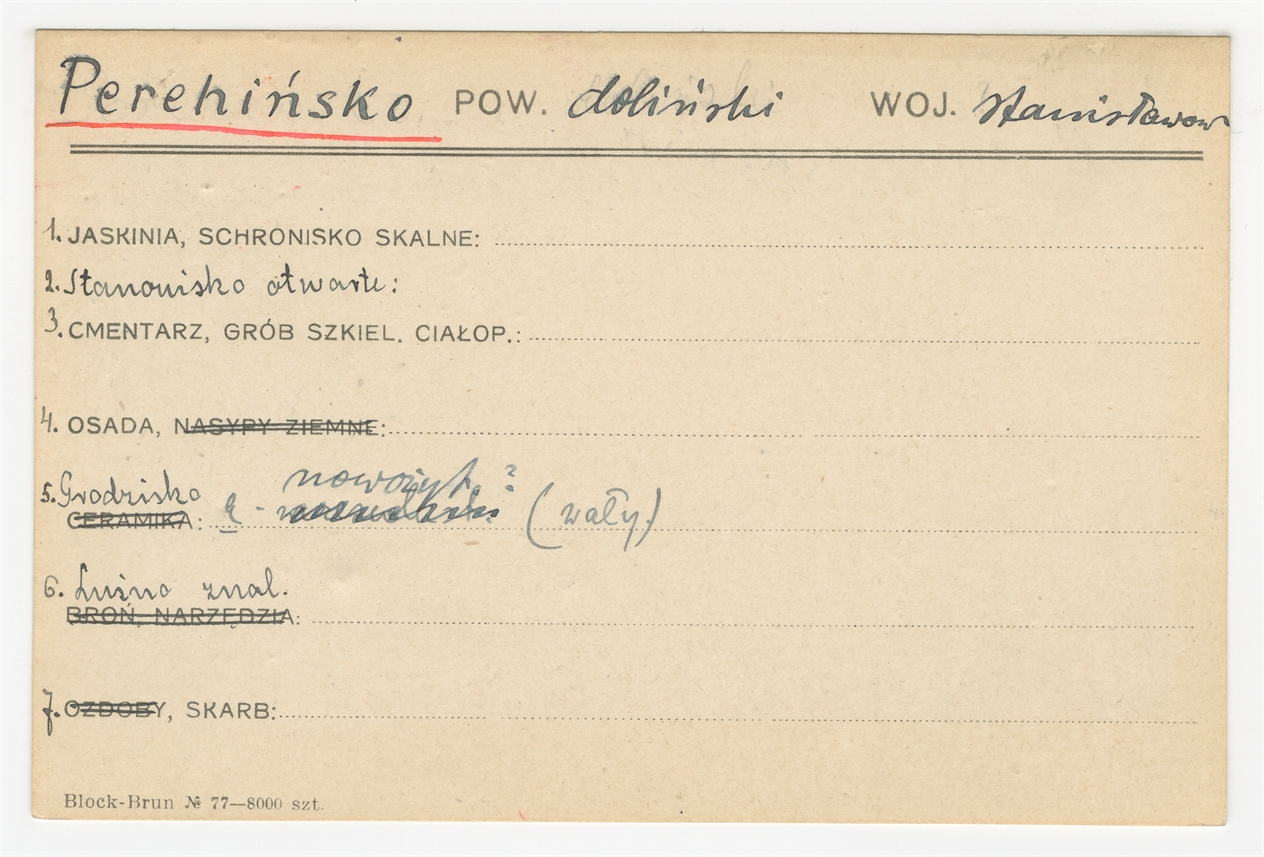 Perehińsko POW. doliński WOJ. Stanisławow
1. JASKINIA, SCHRONISKO SKALNE:
2. Stanowisko otwarte:
3. CMENTARZ, GRÓB SZKIEL. CIAŁOP.:
4. OSADA, NASYPY ZIEMNE:
nowożyt. ?
5. Grodzisko
CERAMIKA: (wały)
6. Luźno znal.
BROŃ, NARZĘDZIA:
7. OZDOBY, SKARB:
Block-Brun № 77—8000 szt.